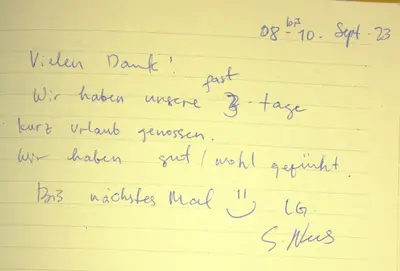 08 - bis 10. Sept. 23
Vielen Dank!
Wir haben unsere fast 3-tage
kurz urlaub genossen.
Wir haben gut / wohl gefühlt.
Bis nächstes Mal LG.
S.